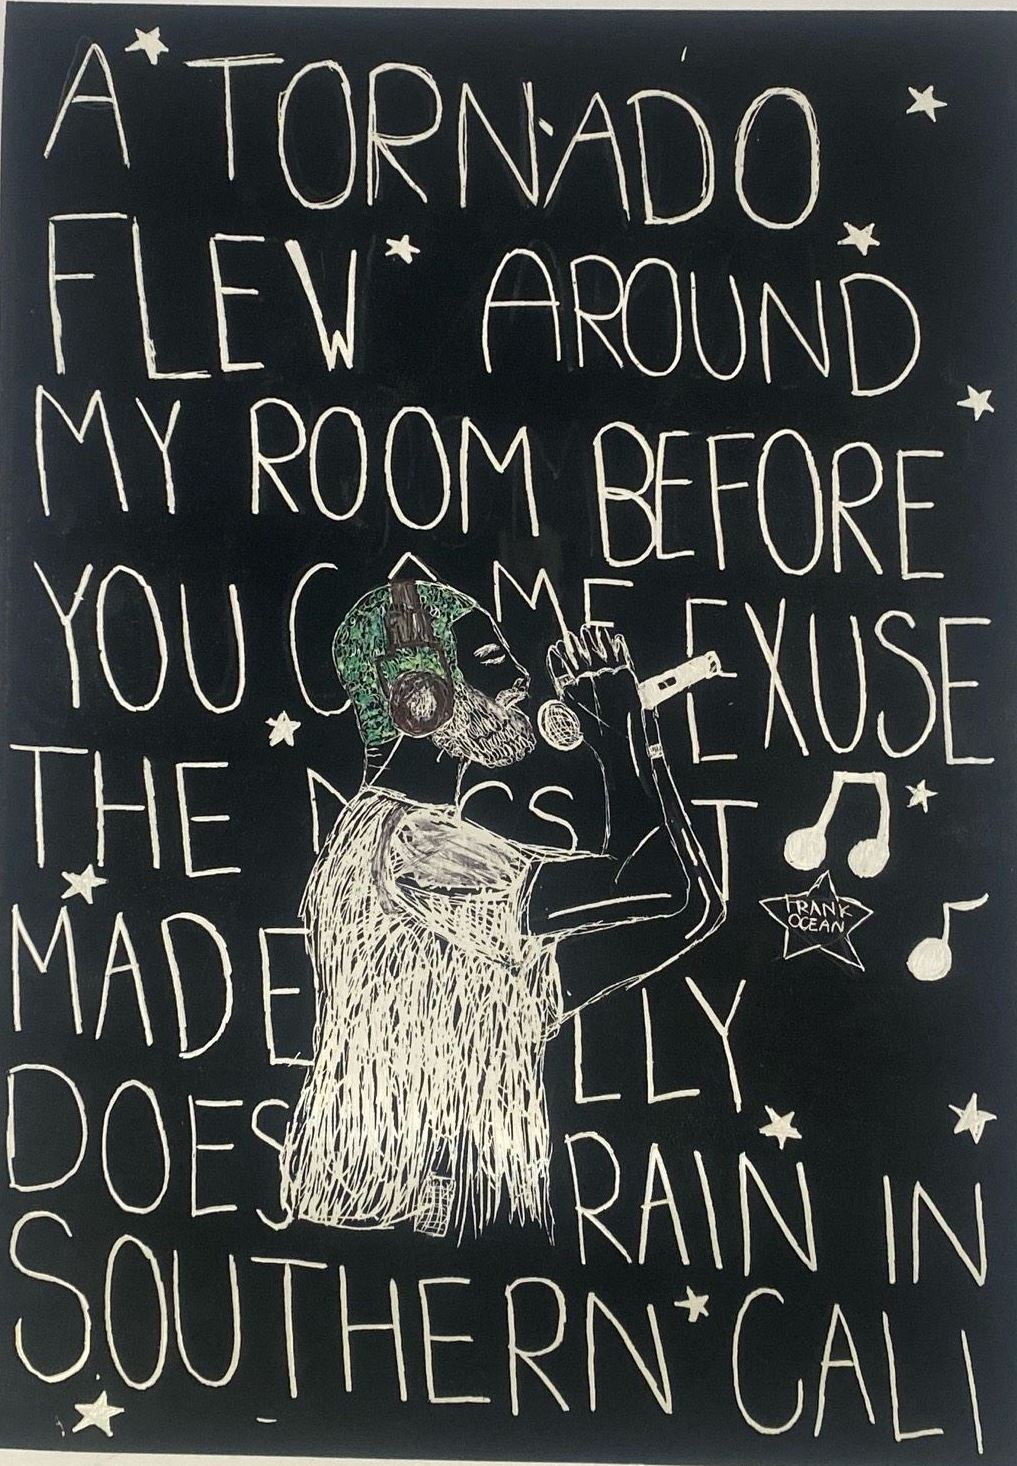 A TORNADO
FLEW AROUND
MY ROOM BEFORE
YOU CAME EXUSE
THE
MADE
DOES RAIN IN
SOUTHERN CALI
FRANK
OCEAN